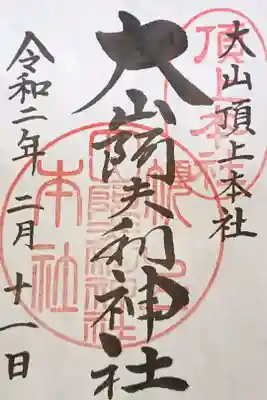 大山頂上本社
大山阿夫利神社
令和二年 二月 十一日
頂上本社
本社